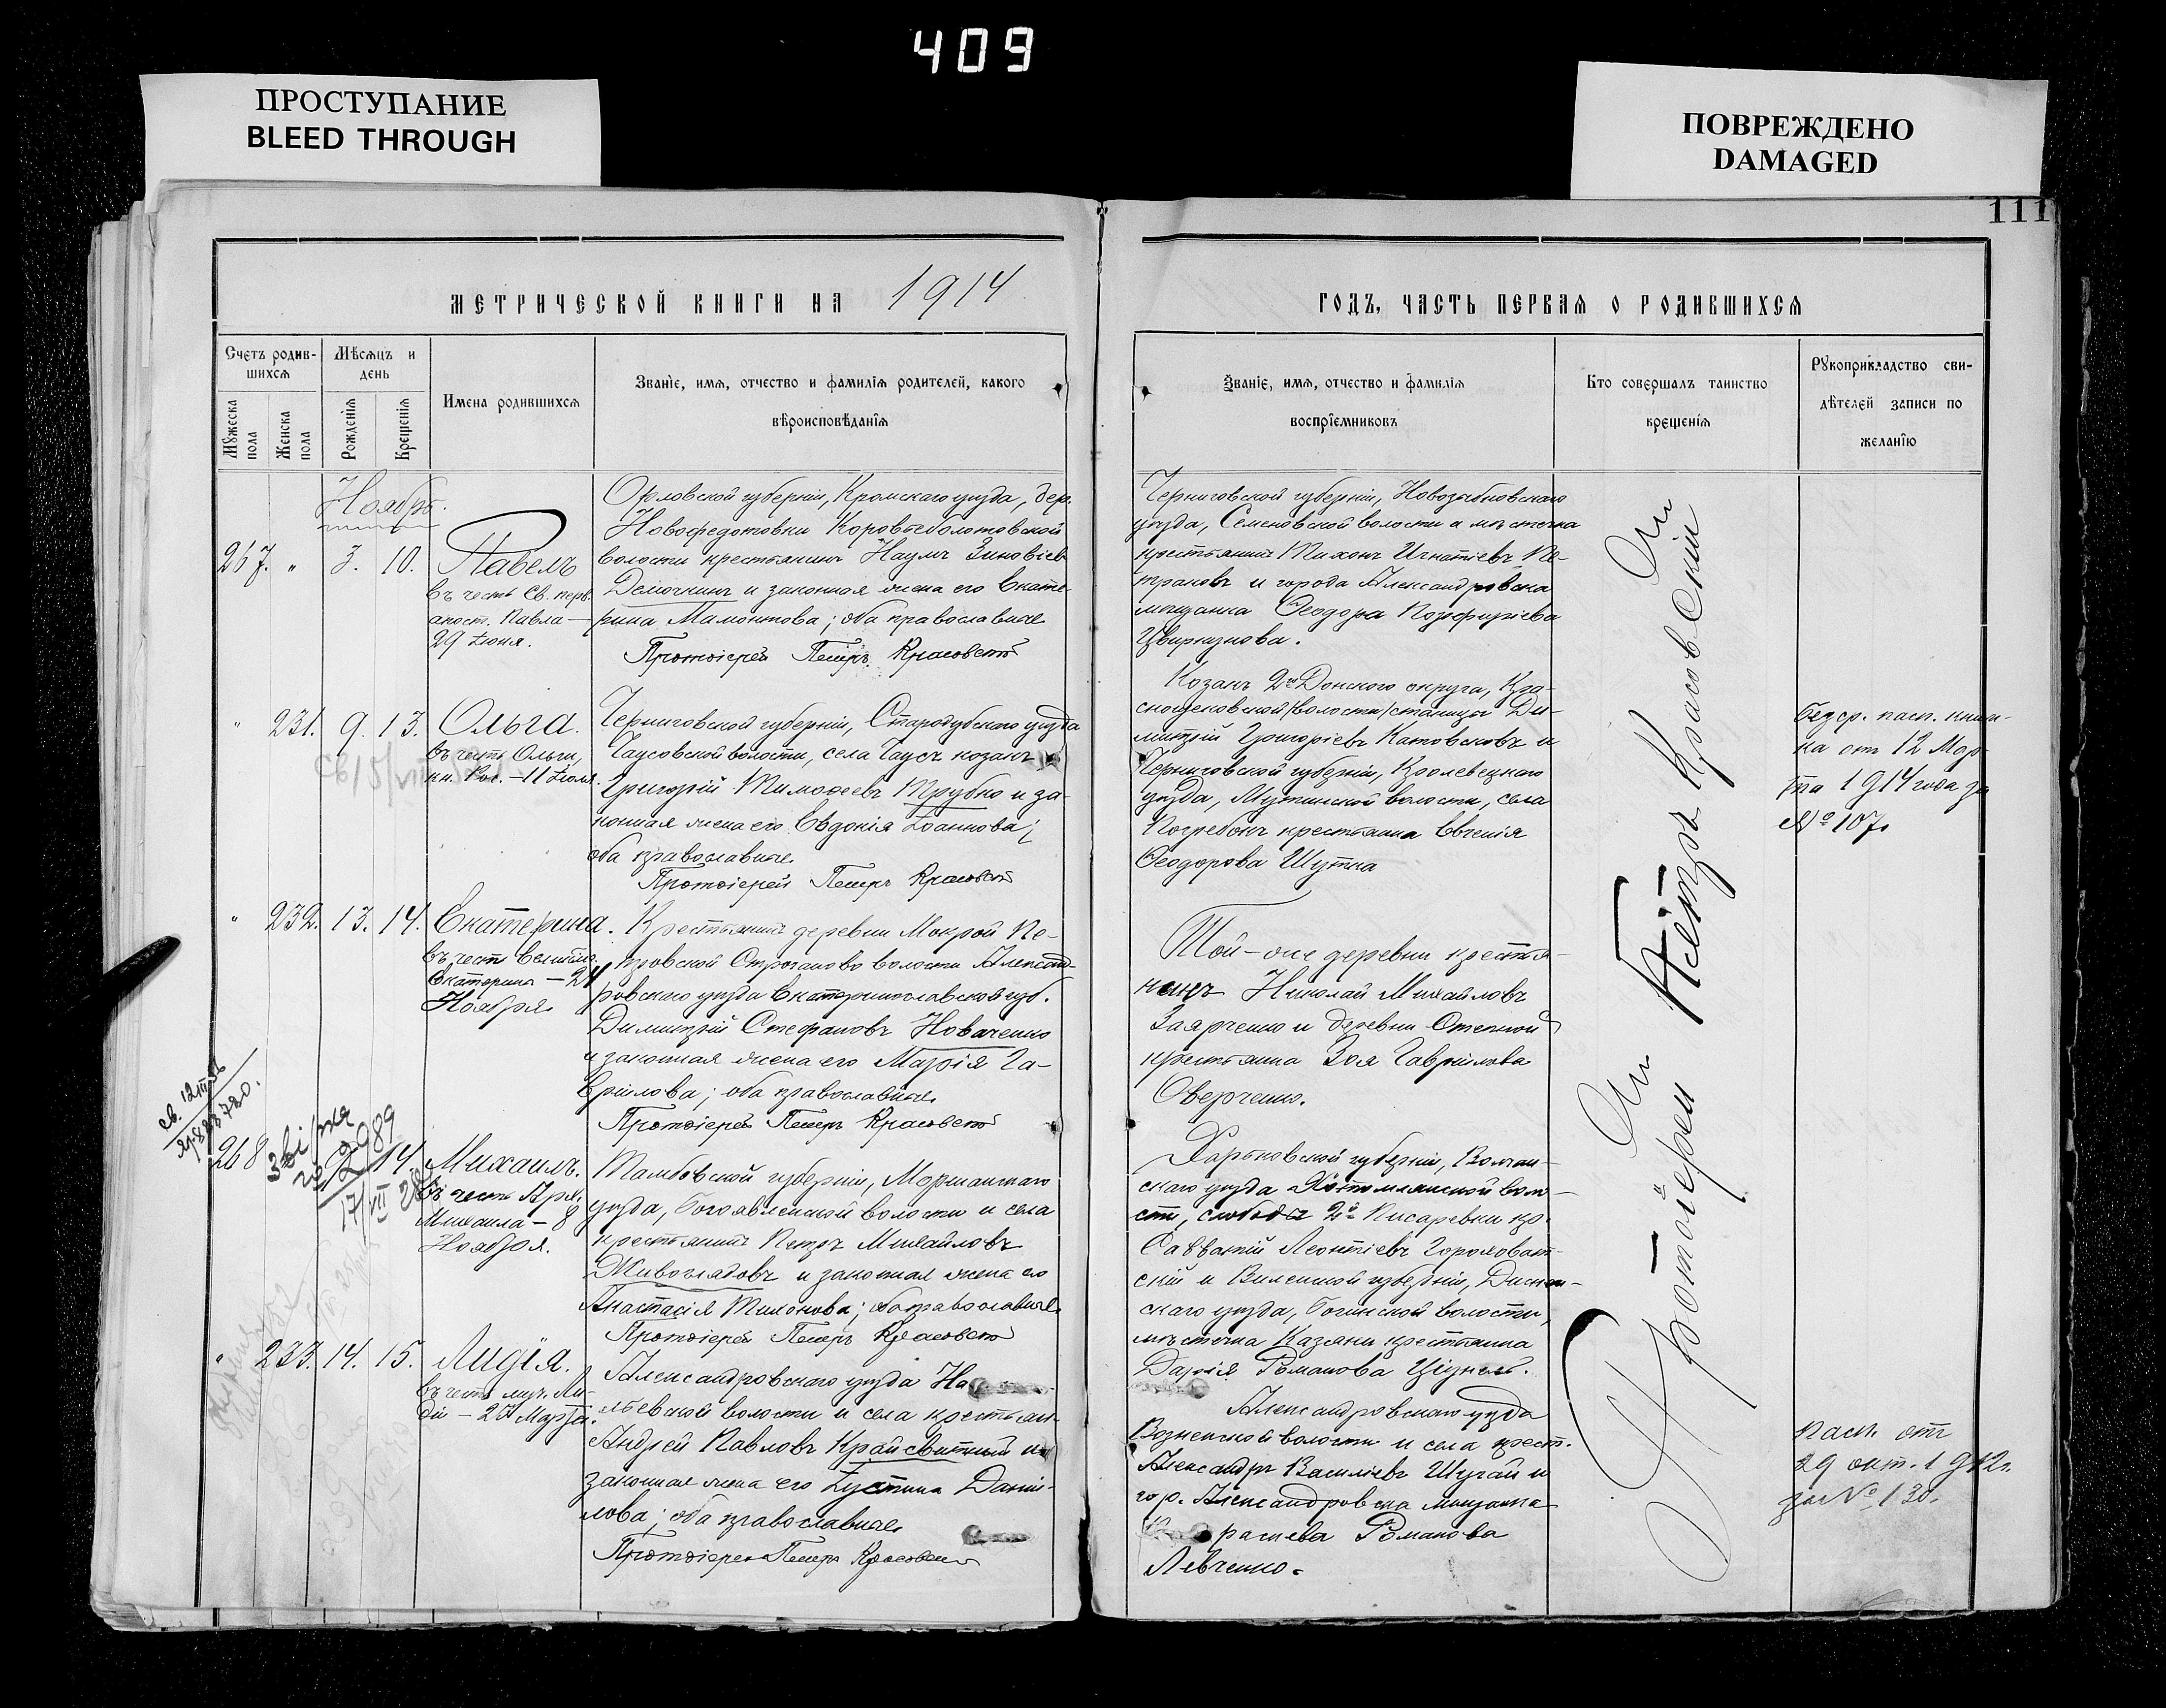 409
ПРОСТУПАНИЕ
BLEED THROUGH
ПОВРЕЖДЕНО
DAMAGED
111
МЕТРИЧЕСКОЙ КНИГИ НА 1914
ГОДЪ, ЧАСТЬ ПЕРВАЯ О РОДИВШИХСЯ
Счетъ родив-
шихся
Мѣсяцъ и
день
Мужеска
пола
Женска
пола
Рожденія
Крещенія
Имена родившихся
Званіе, имя, отчество и фамилія родителей, какого
вѣроисповѣданія
Званіе, имя, отчество и фамилія
воспріемниковъ
Кто совершалъ таинство
крещенія
Рукоприкладство сви-
дѣтелей записи по
желанію
Ноябрь.
267. " 3. 10.
Павелъ
въ честь Св. перв.
апост. Павла —
29 Іюня.
Орловской губерніи, Кромскаго уѣзда, дер.
Новофедотовки Коровьеболотовской
волости крестьянинъ Наумъ Зиновіевъ
Демочкинъ и законная жена его Екате-
рина Мамонтова; оба православные
Протоіерей Петръ Красовскій
Черниговской губерніи, Новозыбковскаго
уѣзда, Семеновской волости и мѣстечка
крестьянинъ Тихонъ Игнатіевъ Пе-
траковъ и города Александровска
мѣщанка Ѳеодора Порфиріева
Цвиркунова.
" 231. 9. 13.
Ольга.
въ честь Ольги,
кн. Рос. — 11 Іюля.
Черниговской губерніи, Стародубскаго уѣзда
Чаусовской волости, села Чаусъ козакъ
Григорій Тимоѳеевъ Трубко и за-
конная жена его Евдокія Іоаннова;
оба православные
Протоіерей Петръ Красовскій
Козакъ 2го Донского округа, Кра-
снощековской /волости/ станицы Ди-
митрій Григоріевъ Катовсковъ и
Черниговской губерніи, Кролевецкаго
уѣзда, Мутинской волости, села
Погребокъ крестьянка Евгенія
Ѳеодорова Шутка
безср. пасп. книж-
ка отъ 12 Мар-
та 1914 года за
№ 107.
" 232. 13. 14.
Екатерина.
въ честь великом.
Екатерины — 24
Ноября
Крестьянинъ деревни Мокрой Пе-
тровской Строганово волости Александ-
ровскаго уѣзда Екатеринославской губ.
Димитрій Стефановъ Новаченко
и законная жена его Марія Га-
вріилова; оба православные.
Протоіерей Петръ Красовскій
Той-же деревни крестья-
нинъ Николай Михайловъ
Заярченко и деревни Степной
крестьянка Зоя Гавріилова
Оверченко.
268 " 2 14.
Михаилъ.
въ честь Арх.
Михаила — 8
Ноября.
Тамбовской губерніи, Моршанскаго
уѣзда, Богоявленской волости и села
крестьянинъ Петръ Михайловъ
Живоглядовъ и законная жена его
Анастасія Тихонова; оба православные
Протоіерей Петръ Красовскій
Харьковской губерніи, Волчан-
скаго уѣзда Хотомлянской воло-
сти, слободы 2й Писаревки кр.
Савватій Леонтіевъ Гороховат-
скій и Виленской губерніи, Диснен-
скаго уѣзда, Богинской волости,
мѣстечка Казяны крестьянка
Дарія Романова
" 233. 14. 15.
Лидія.
въ честь муч. Ли-
діи — 23 Марта.
Александровскаго уѣзда На
льевской волости и села крестьян.
Андрей Павловъ Крайсвитный и
законная жена его Іустина Даніи-
лова; оба православные
Протоіерей Петръ Красовскій
Александровскаго уѣзда
Вознесенской волости и села крест.
Александръ Василіевъ Шугай и
гор. Александровска мѣщанка
Романова
Левченко.
пасп. отъ
29 окт. 1912 г.
за № 130.
Протоіерей Петръ Красовскій